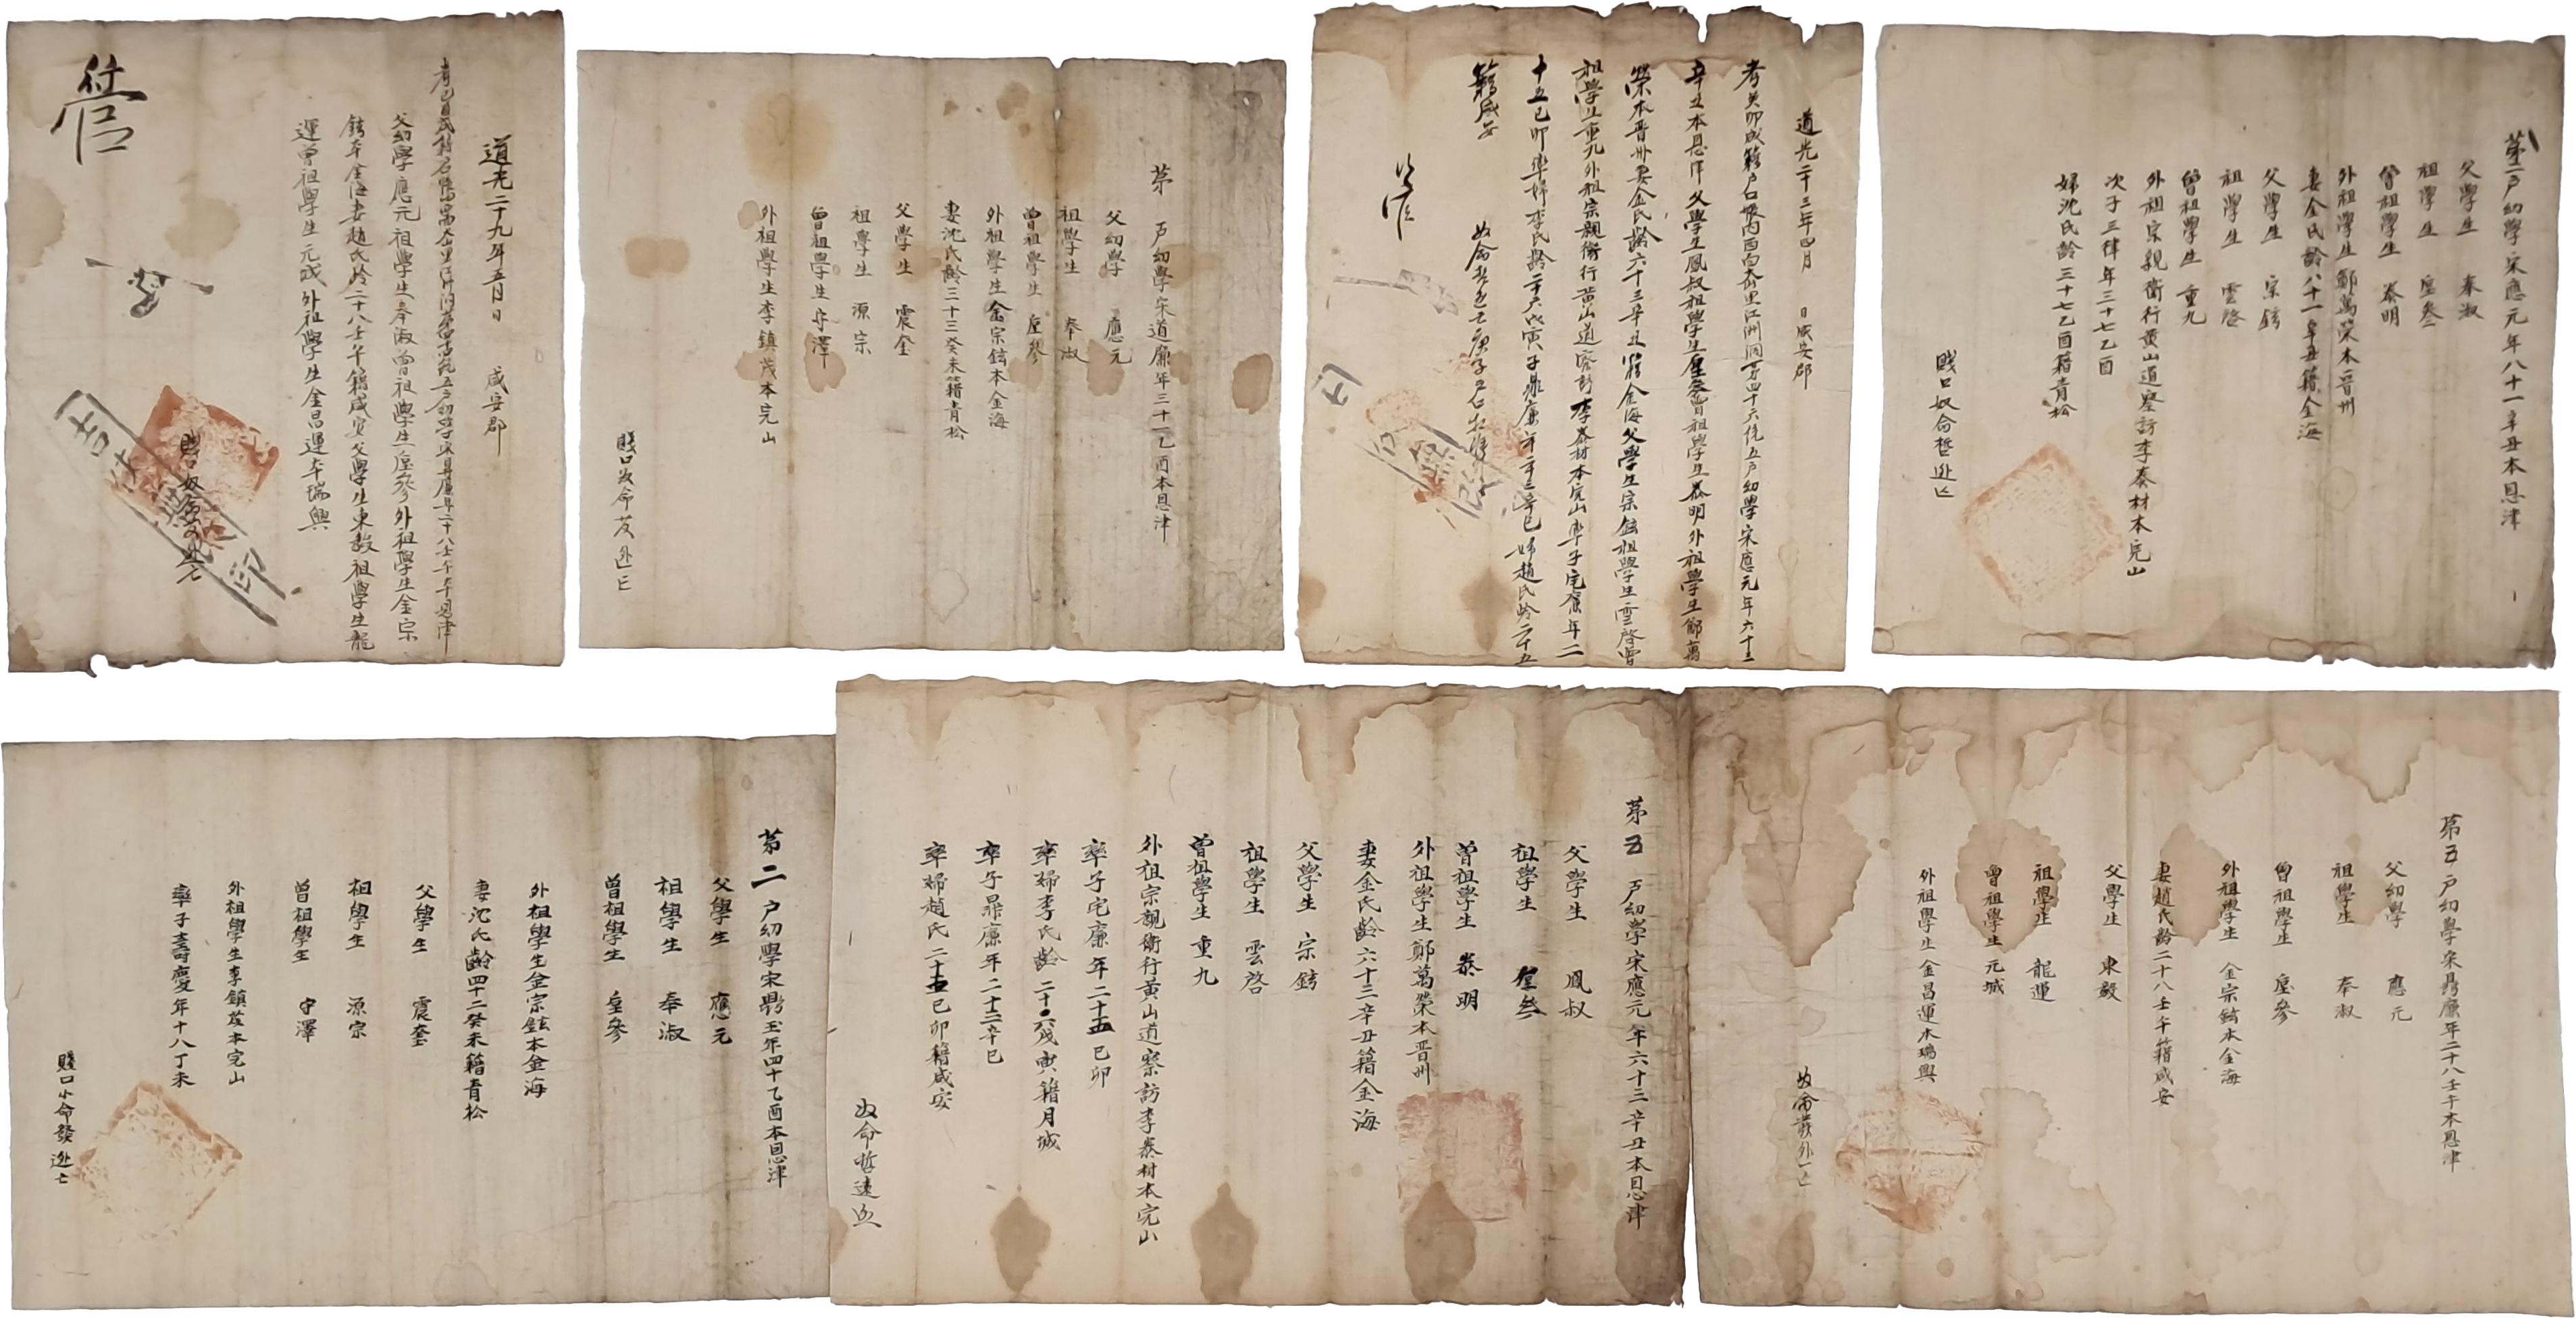 道光二十九年五月 日 咸安郡
父幼學應元祖學生奉淑曾祖學生垕參外祖學生金宗
鉉本金海妻趙氏齡二十八壬午籍咸安父學生東毅祖學生龍
運曾祖學生元城外祖學生金昌運本瑞興
賤口奴
第 戶幼學宋道廉年三十一乙酉本恩津
父幼學 應元
祖學生 奉淑
曾祖學生 垕參
外祖學生金宗鉉本金海
妻沈氏齡三十三癸未籍青松
父學生 震奎
祖學生 源宗
曾祖學生 守澤
外祖學生李鎮茂本完山
賤口奴命發迯亡
道光二十三年四月 日咸安郡
辛丑本恩津父學生鳳叔祖學生垕參曾祖學生泰明外祖學生鄭萬
榮本晋州妻金氏齡六十三辛丑籍金海父學生宗鉉祖學生雲啓曾
祖學生重九外祖宗親衛行黃山道察訪李泰材本完山率子宅廉年二
十五己卯率婦李氏齡二十六戊寅子鼎廉年二十三辛巳婦趙氏齡二十五
籍咸安
第一戶幼學宋應元年八十一辛丑本恩津
父學生 奉淑
祖學生 垕參
曾祖學生 泰明
外祖學生鄭萬榮本晋州
妻金氏齡八十一辛丑籍金海
父學生 宗鉉
祖學生 雲啓
曾祖學生 重九
外祖宗親衛行黃山道察訪李泰材本完山
次子三律年三十七乙酉
婦沈氏齡三十七乙酉籍青松
賤口奴命哲迯亡
第二戶幼學宋鼎玉年四十乙酉本恩津
父學生 應元
祖學生 奉淑
曾祖學生 垕參
外祖學生金宗鉉本金海
妻沈氏齡四十二癸未籍青松
父學生 震奎
祖學生 源宗
曾祖學生 守澤
外祖學生李鎮茂本完山
率子壽慶年十八丁未
賤口小命發迯亡
第五 戶幼學宋應元年六十三辛丑本恩津
父學生 鳳叔
祖學生 垕叅
曾祖學生 泰明
外祖學生鄭萬榮本晋州
妻金氏齡六十三辛丑籍金海
父學生 宗鉉
祖學生 雲啓
曾祖學生 重九
外祖宗親衛行黃山道察訪李泰材本完山
率子宅廉年二十五己卯
率婦李氏齡二十六戊寅籍月城
率子鼎廉年二十三辛巳
率婦趙氏二十五己卯籍咸安
奴命哲逃亡
第五戶幼學宋鼎廉年二十八壬午本恩津
父幼學 應元
祖學生 奉淑
曾祖學生 垕參
外祖學生 金宗鉉本金海
妻趙氏齡二十八壬午籍咸安
父學生 東毅
祖學生 龍運
曾祖學生 元城
外祖學生金昌運本瑞興
奴命發外亡